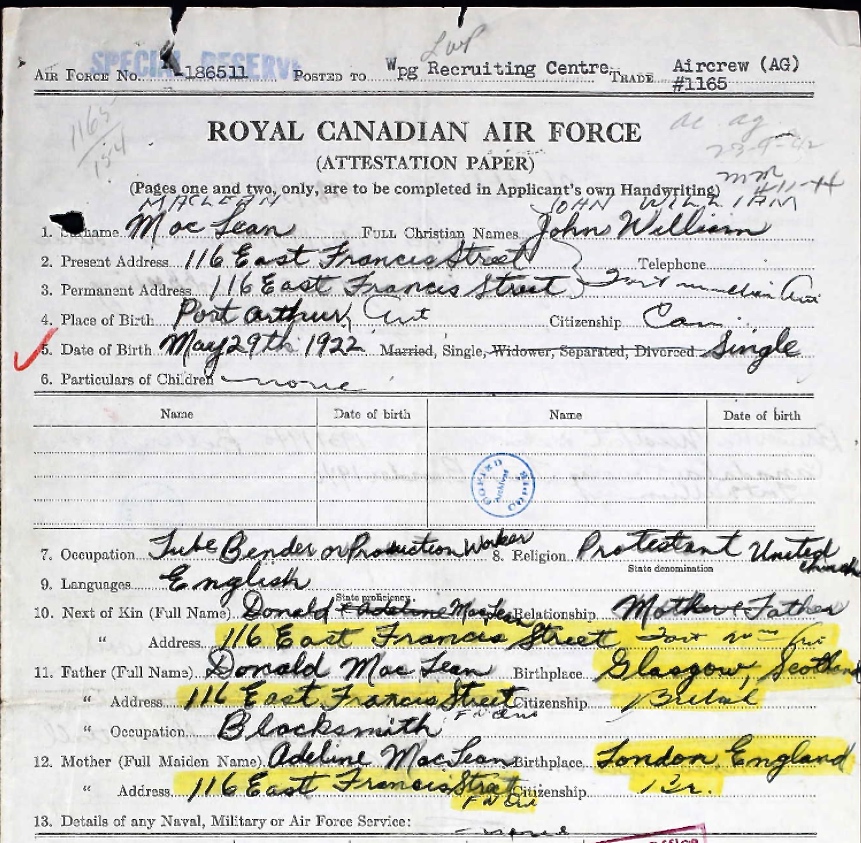 Lwp
SPECIAL RESERVE
AIR FORCE NO. -186511 POSTED TO Wpg Recruiting Centre TRADE Aircrew (AG)
#1165
1165
154
ac ag
ROYAL CANADIAN AIR FORCE
23-9-42
(ATTESTATION PAPER)
mm
(Pages one and two, only, are to be completed in Applicant's own Handwriting) #11-44
MACLEAN JOHN WILLIAM
1. Surname Mac Lean FULL CHRISTIAN NAMES John William
2. Present Address 116 East Francis Street Telephone
3. Permanent Address 116 East Francis Street Fort William Ont
4. Place of Birth Port Arthur, Ont Citizenship Can
5. Date of Birth May 29th 1922 Married, Single, Widower, Separated, Divorced Single
6. Particulars of Children none
Name Date of birth Name Date of birth
COPIED
Archives
7. Occupation Tube Bender or Production Worker 8. Religion Protestant United Church
State denomination
9. Languages English
State proficiency
10. Next of Kin (Full Name) Donald & Adeline MacLean Relationship Mother & Father
" Address 116 East Francis Street Fort Wm Ont
11. Father (Full Name) Donald Mac Lean Birthplace Glasgow, Scotland
" Address 116 East Francis Street Citizenship British
F W Ont
" Occupation Blacksmith
12. Mother (Full Maiden Name) Adeline MacLean Birthplace London, England
" Address 116 East Francis Street Citizenship Br.
F W Ont
13. Details of any Naval, Military or Air Force Service: